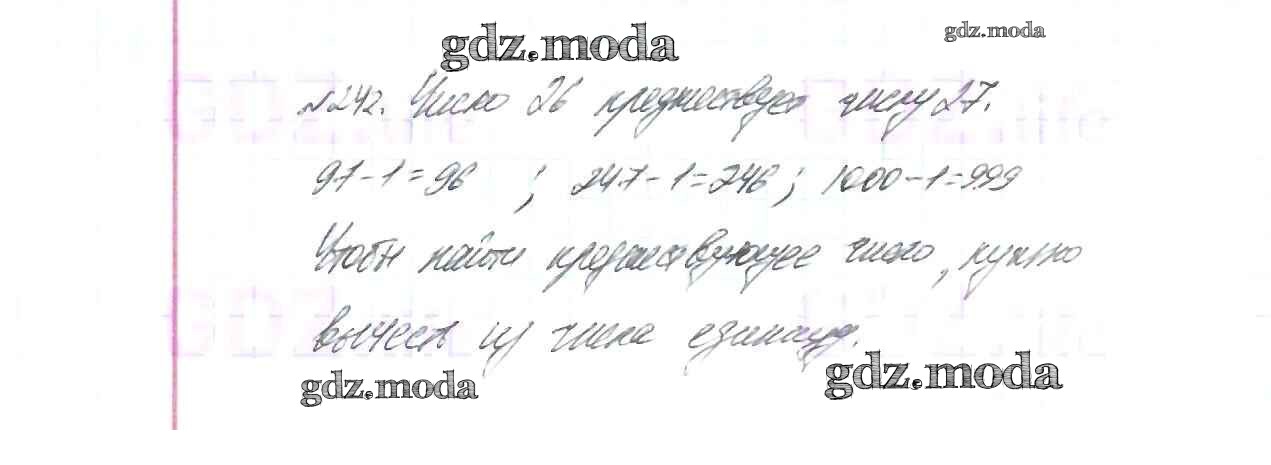 gdz.moda
gdz.moda
№242. Число 26 предшествует числу 27.
97-1=96 ; 247-1=246; 1000-1=999
Чтобы найти предшествующее число, нужно
вычесть из числа единицу.
gdz.moda
gdz.moda